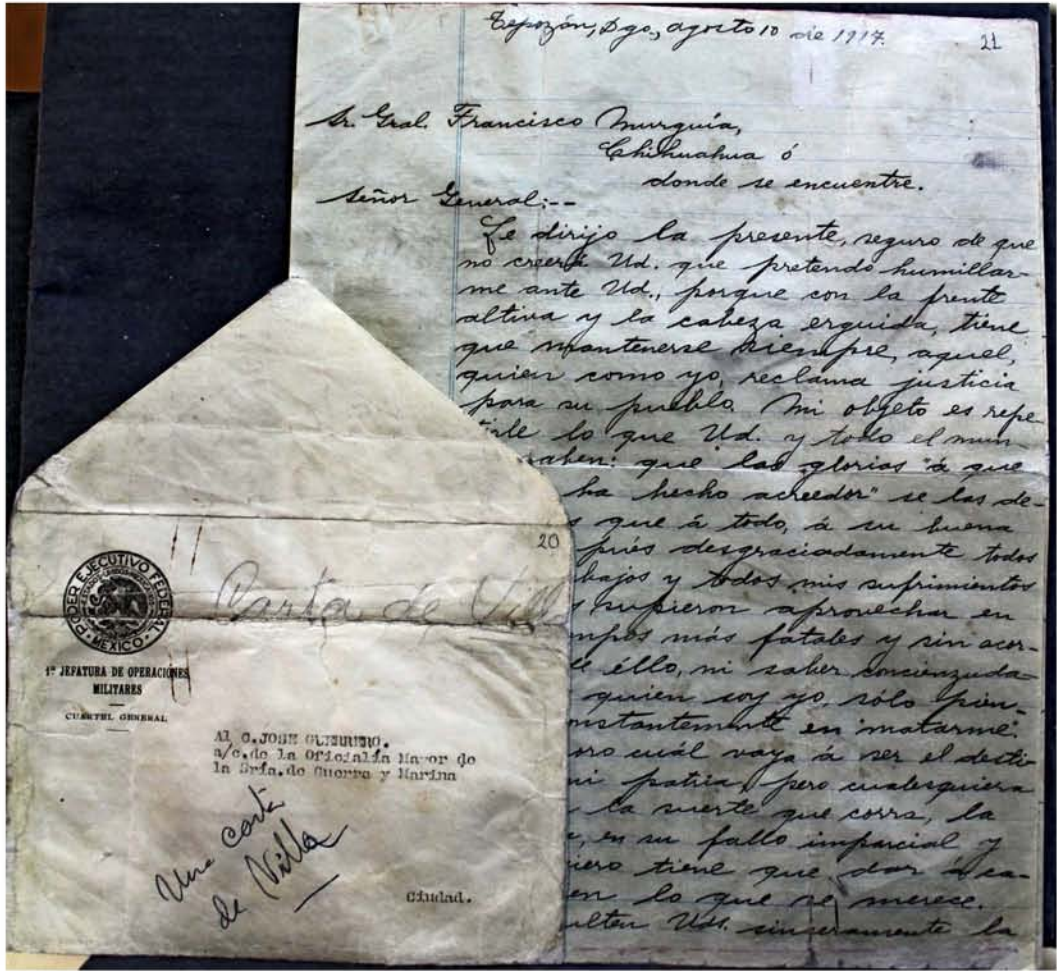 Tepozán, Dgo., agosto 10 de 1917.
21
Sr. Gral. Francisco Murguía,
Chihuahua ó
donde se encuentre.
Señor General:--
Le dirijo la presente, seguro de que
no creerá Ud. que pretendo humillar-
me ante Ud., porque con la frente
altiva y la cabeza erguida, tiene
que mantenerse siempre, aquel,
quien como yo, reclama justicia
para su pueblo. Mi objeto es repe-
tirle lo que Ud. y todo el mun
saben: que las glorias "á que
ha hecho acreedor" se las de-
que á todo, á su buena
pués desgraciadamente todos
bajos y todos mis sufrimientos
supieron aprovechar en
mpos más fatales y sin acor-
de éllo, ni saber concienzuda-
quien soy yo, sólo pien-
nstantemente en matarme.
oro cuál vaya á ser el desti-
mi patria, pero cualesquiera
la suerte que corra, la
, en su fallo imparcial y
iero tiene que dar á ca-
en lo que se merece.
ulten Uds. sinceramente la
20
Carta de Villa
PODER EJECUTIVO FEDERAL
MEXICO
1ª JEFATURA DE OPERACIONES
MILITARES
CUARTEL GENERAL
Al C. JOSE GUERRERO.
a/c. de la Oficialía Mayor de
la Sría. de Guerra y Marina
Una carta
de Villa
Ciudad.